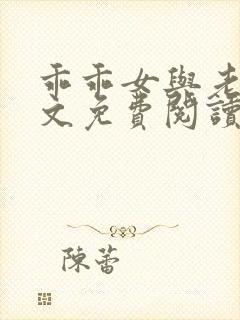 乖乖女與老
文免費閱讀
陳蕾